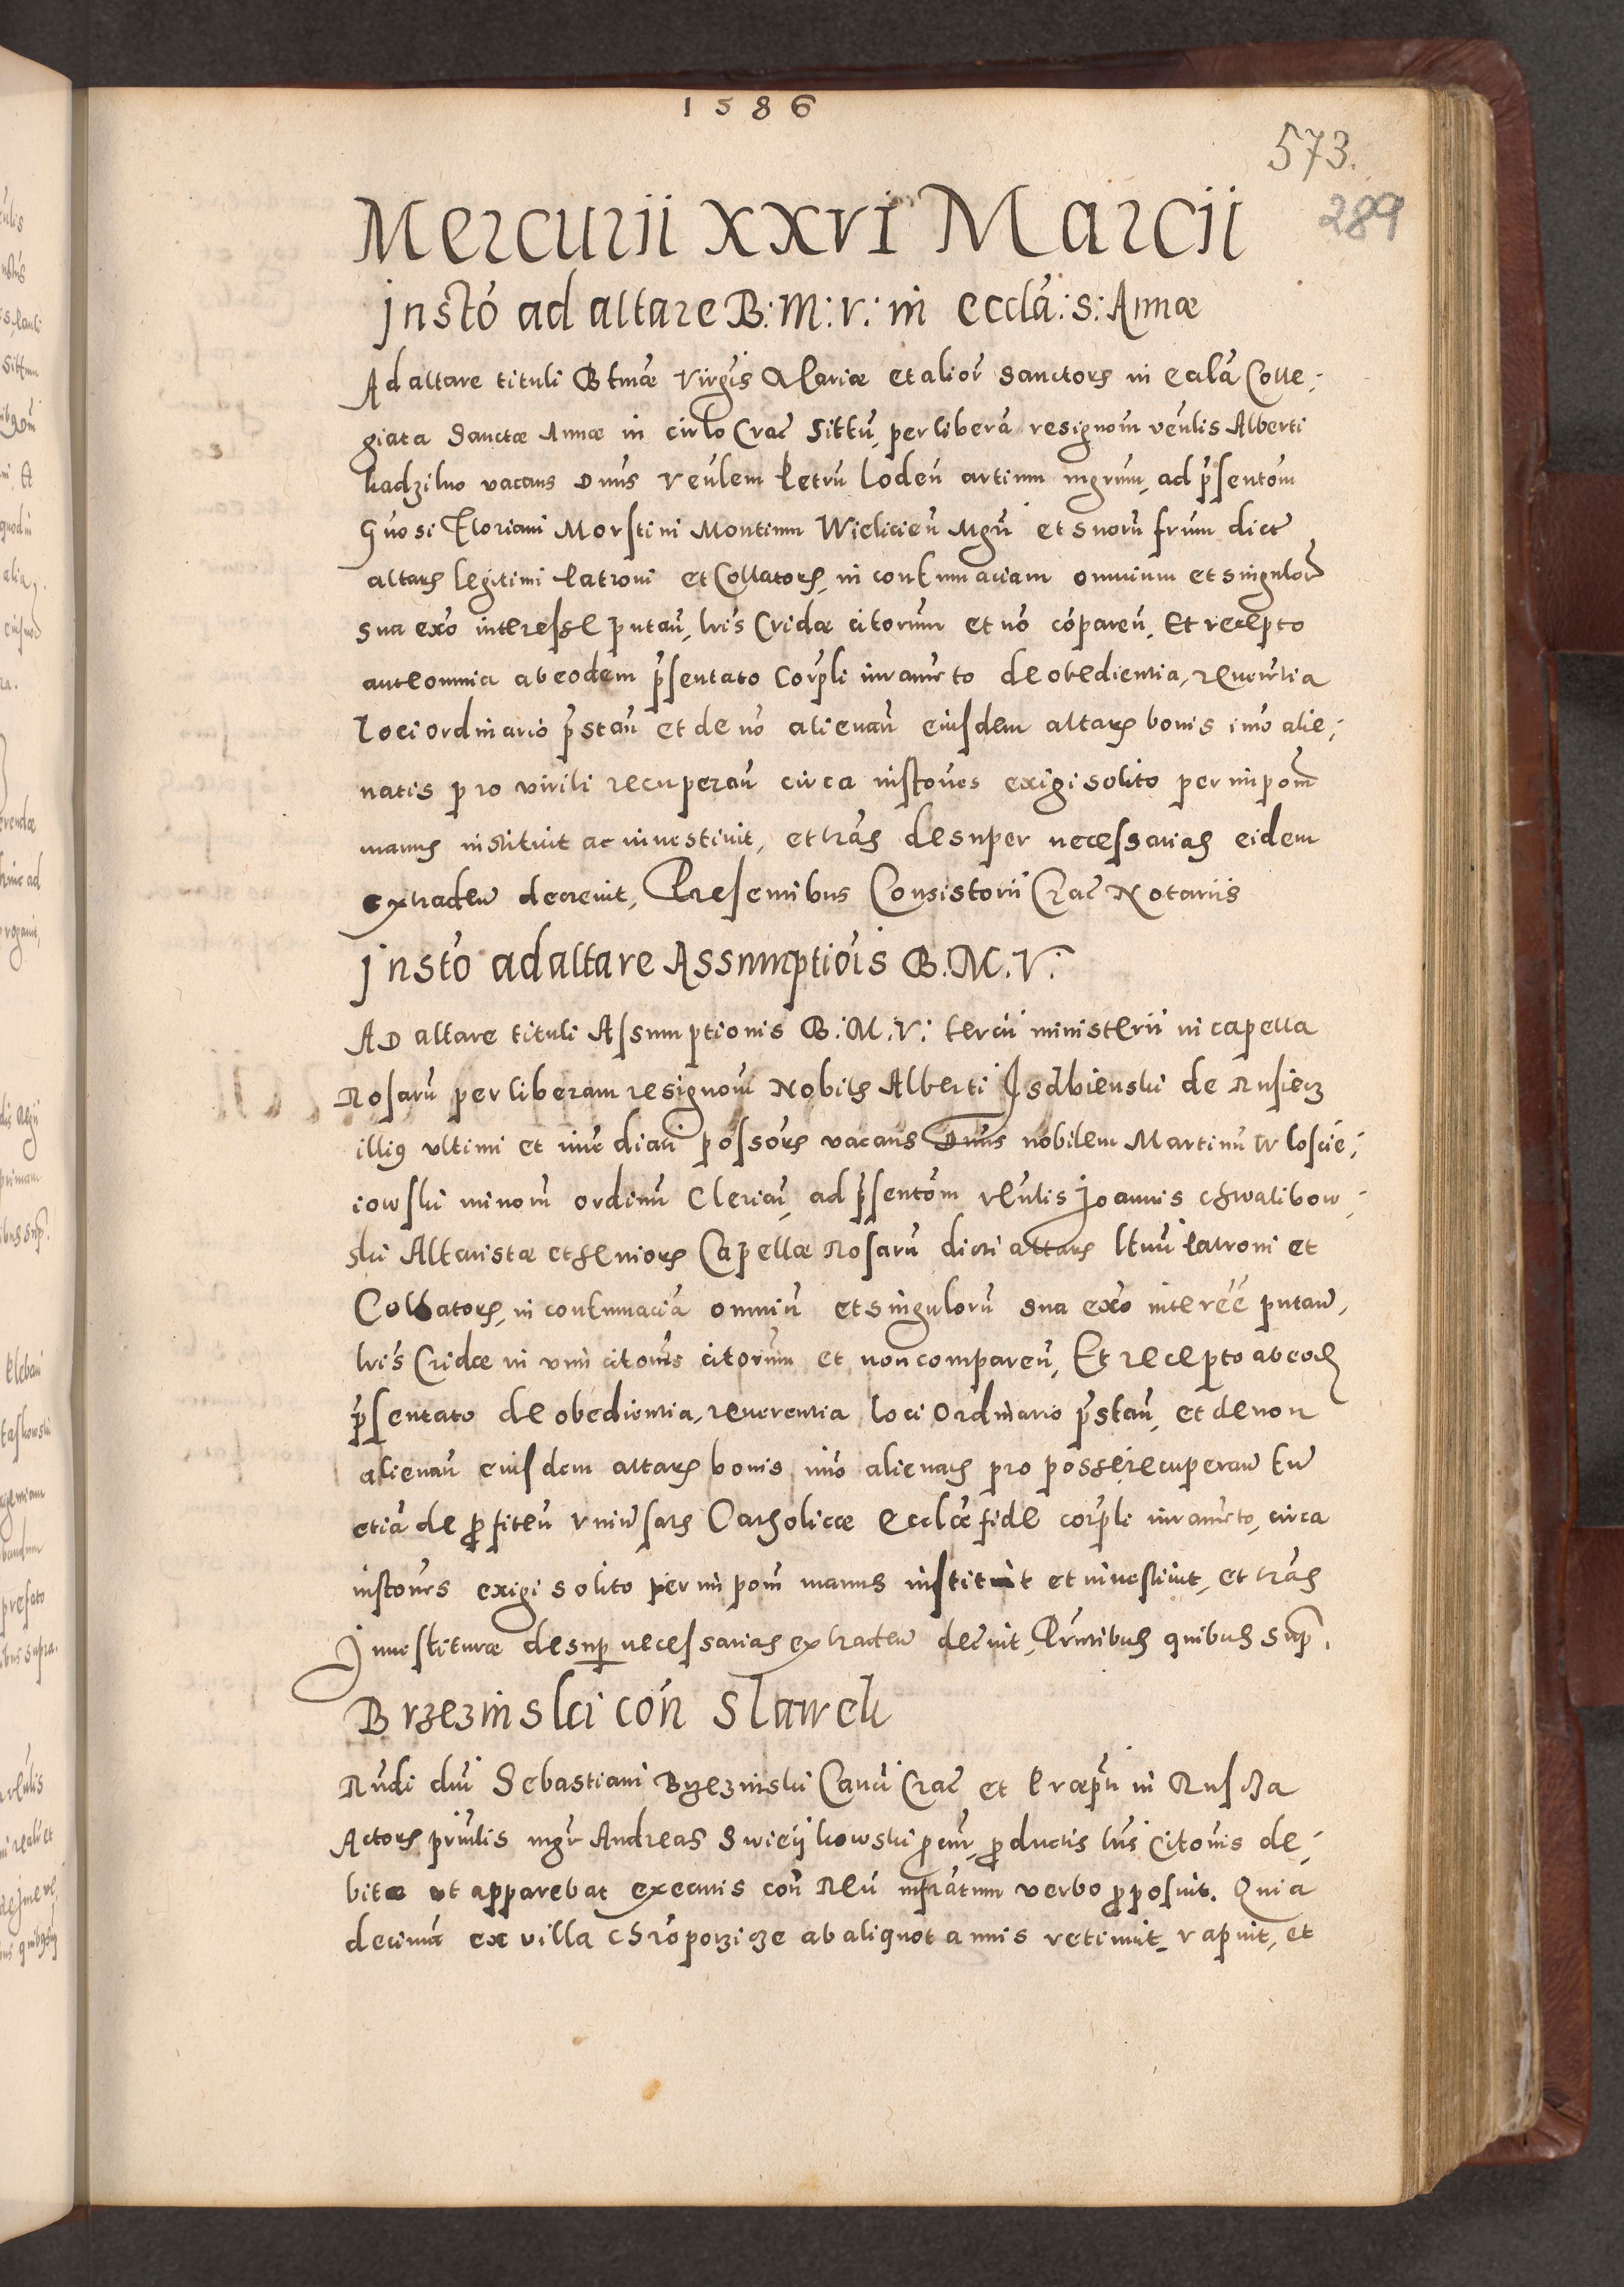 1586
573.
289
Mercurii XXVI Marcii
Instõ ad altare B: M: V: in eccla: S: Annæ
Ad altare tituli Btmæ Virgis Mariæ et alior Sanctors in eccla Colle,
giata Sanctæ Annæ in cirlo Crac̃ Sittũ, per liberã resignom veulis Alberti
vacans Dnus veulem Petrũ artium mgrum, ad p̃sentom
Gnosi Floriani Morstini Montium Wielicien̄ Mgri et suorũ frum dict
altaris legitimi Patroni et Collatoris, in contumaciam omnium et singulor
sua exõ interesse putan̄, lris Cridæ citorum et nõ cóparen̄, Et recepto
ante omnia ab eodem p̃sentato corpli iuramto de obedientia, reuertia
loci ordinario p̃stan̄ et de nõ alienan̄ eiusdem altaris bonis imõ alie,
natis pro virili recuperan̄ circa instoues exigi solito per impom̃
manus instituit ac inuestiuit, et lras desuper necessarias eidem
extraden̄ decreuit, Presentibus Consistorii Crac̃ Notariis
Instõ ad altare Assumptiõis B. M. V.
Ad altare tituli Assumptionis B. M. V. tercii ministerii in capella
Rosarũ per liberam resignom Nobilis Alberti de Rusiecz
illius ultimi et imcdiati possoris vacans Dnus nobilem Martinũ Wloscie,
iowski minom̃ ordinũ Clericũ, ad p̃sentom veulis Joannis Chwalibow,
ski Altaristæ et senioris Capellæ Rosarũ dicti altaris ltmi Patroni et
Collatoris, in contumaciã omniũ et singulorũ sua exõ interée putan̄,
lris Cridæ in vim citonis citorum et non comparen̄, Et recepto ab eodẽ
p̃sentato de obedientia, reuerentia loci Ordinario p̃stan̄, et de non
alienan̄ eiusdem altaris bonis imõ alienatis pro posse recuperan̄ tũ
etiã de profiten̄ vniuersalis Catholicæ ecclæ fide corpli iuramto, circa
instones exigi solito per impom̃ manus instituit et inuestiuit, et lras
Inuestituræ desup necessarias extraden̄ decreuit, Pñtibus quibus sup.
Brzezinski cón Slawek
Rñdi dni Sebastiani Brzezinski Canci Crac̃ et Præpti in Ruscza
Actoris prĩlis mgr Andreas Swieijkowski procur, productis lris citonis de,
bite ut apparebat executis cón Reũ infratum verbo proposuit. Quia
decimã ex villa ab aliquot annis retinuit, rapuit, et